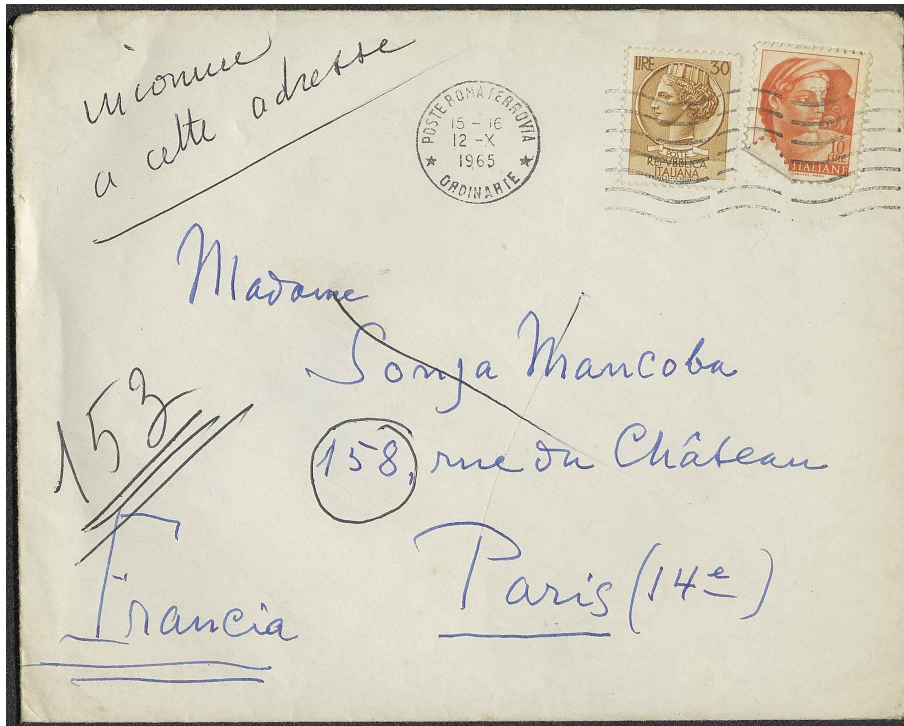 inconnue
a cette adresse
POSTE ROMA FERROVIA
15 - 16
12 - X
1965
ORDINARIE
LIRE 30
POSTE
REPVBBLICA
ITALIANA
10
LIRE
ITALIANE
Madame
Sonja Mancoba
153
158, rue du Château
Paris (14e)
Francia